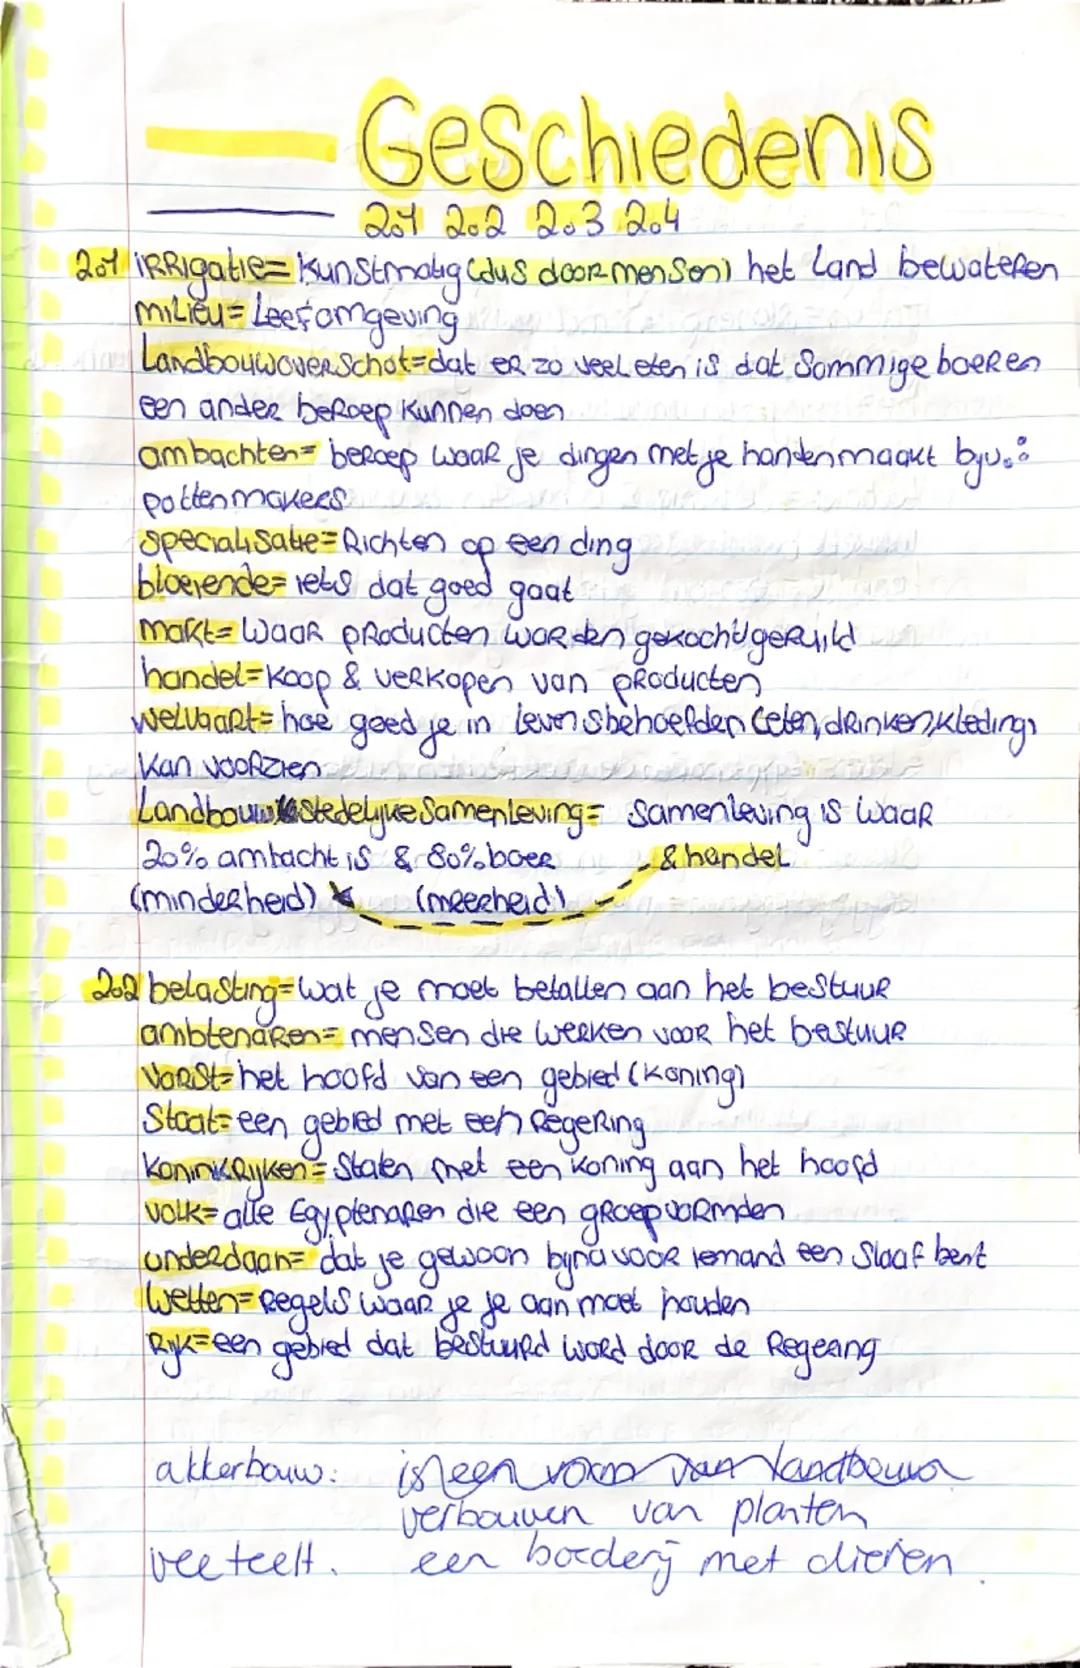 Geschiedenis
2.1 2.2 2.3 2.4
2.1 irrigatie= kunstmatig (dus door mensen) het land bewateren
milieu= Leefomgeving
Landbouwoverschot= dat er zo veel eten is dat sommige boeren
een ander beroep kunnen doen
ambachten= beroep waar je dingen met je handen maakt bijv.:
pottenmakers
specialisatie= Richten op een ding
bloeiende= iets dat goed gaat
markt= waar producten worden gekocht/geruild
handel= koop & verkopen van producten
welvaart= hoe goed je in levensbehoefden (eten, drinken, kleding)
kan voorzien
Landbouw stedelijke samenleving= samenleving is waar
20% ambacht is & 80% boer & handel
(minderheid) (meerheid)
2.2 belasting= wat je moet betallen aan het bestuur
ambtenaren= mensen die werken voor het bestuur
Vorst= het hoofd van een gebied (koning)
Staat= een gebied met een Regering
koninkrijken= Staten met een koning aan het hoofd
volk= alle Egyptenaren die een groep vormden
onderdaan= dat je gewoon bijna voor iemand een slaaf bent
Wetten= Regels waar je je aan moet houden
Rijk= een gebied dat bestuurd word door de Regering
akkerbouw: is een vorm van landbouw
verbouwen van planten
veeteelt. een boederij met dieren.